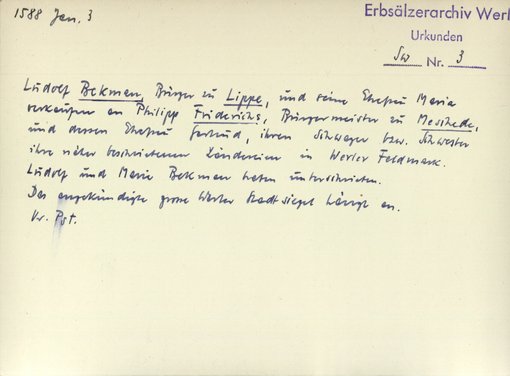 1588 Jan. 3
Erbsälzerarchiv Werl
Urkunden
Sw Nr. 3
Ludolf Bekman, Bürger zu Lippe, und seine Ehefrau Maria
verkaufen an Philipp Friderichs, Bürgermeister zu Meschede,
und dessen Ehefrau Gertrud, ihren Schwager bzw. Schwester
ihre näher beschriebenen Ländereien in Werler Feldmark.
Ludolf und Maria Bekman haben unterschrieben.
Das angekündigte grosse Werler Stadtsiegel hängt an.
Or. Pgt.